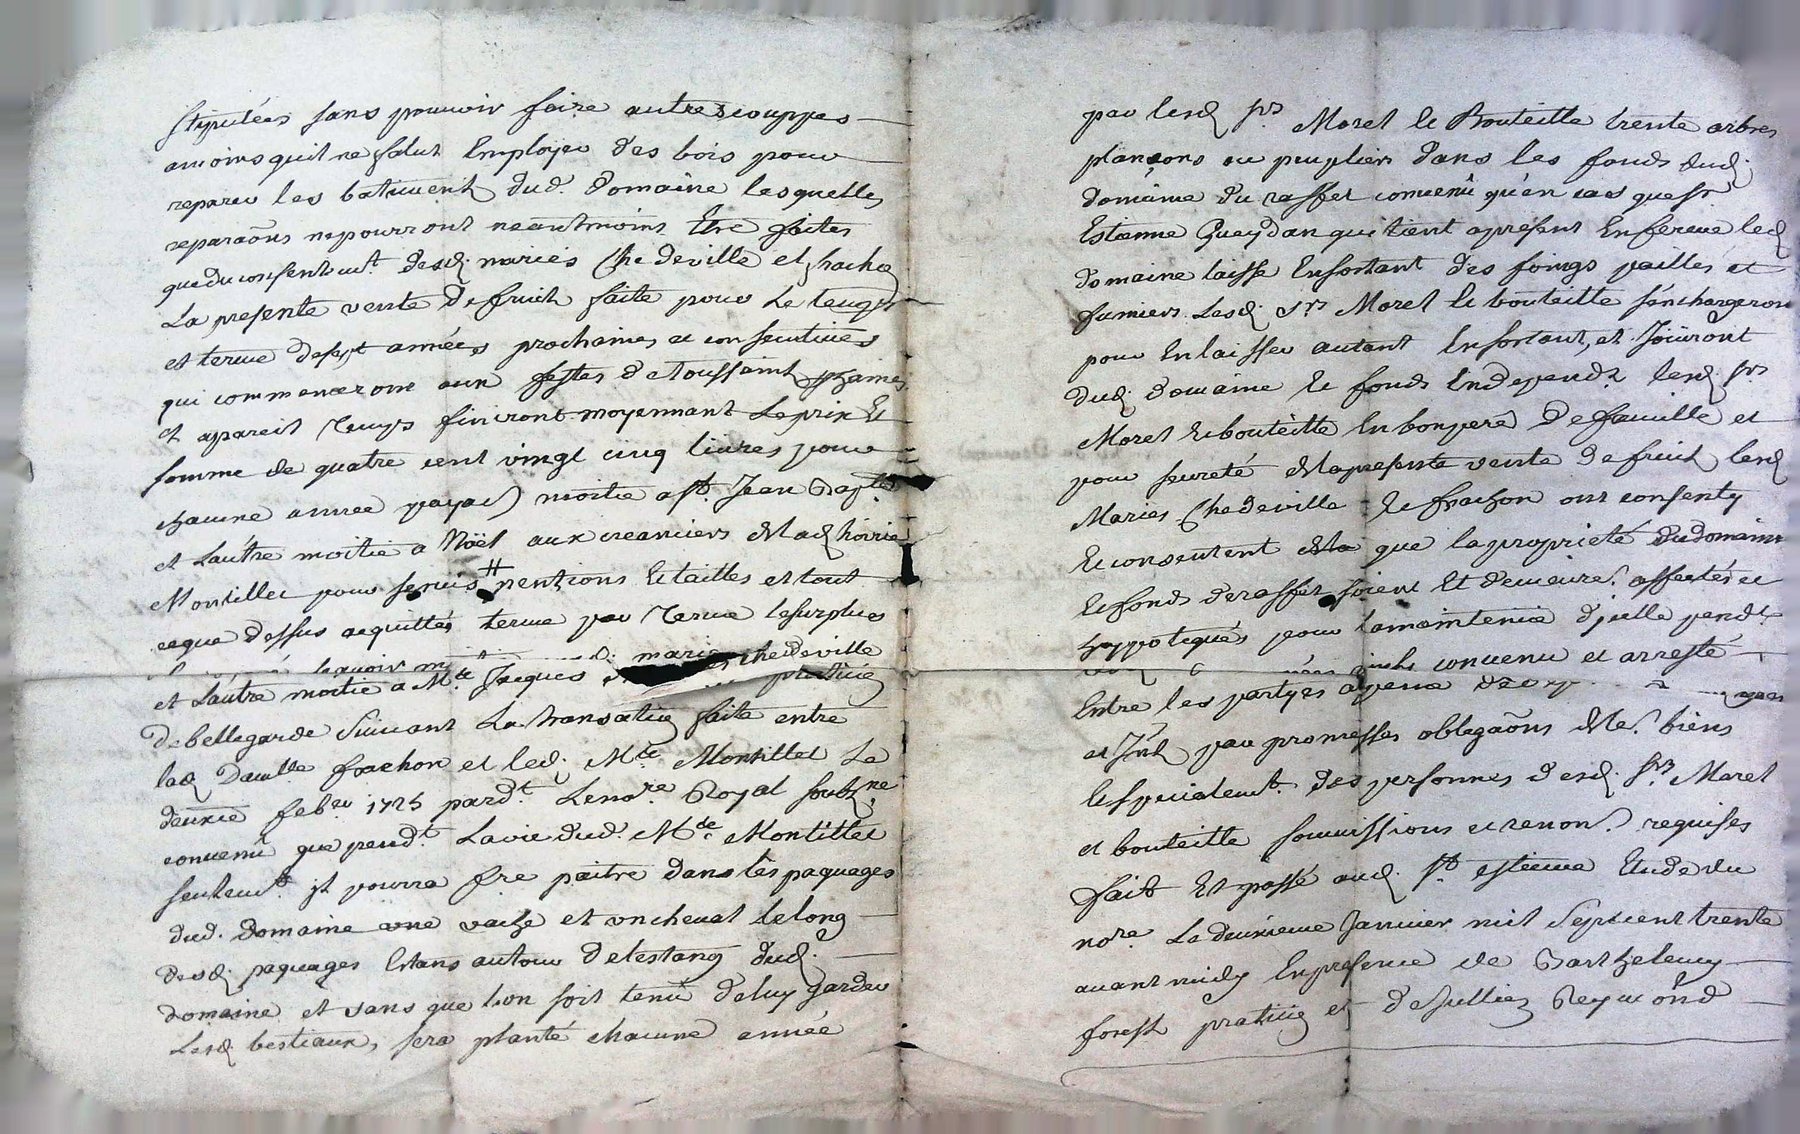 stipulées sans pouvoir faire autres couppes
amoins quil ne falut Employer des bois pour
reparer les batiments dud. Domaine lesquelles
reparaõns ne pourront neantmoins Etre faites
que du consentemt. desd. mariés Chedeville et frachon
La presente vente de fruits faite pour Le temps
et terme de sept années prochaines et consecutives
qui commenceront aux festes de toussaint
et a pareil temps finiront moyennant Le prix Et
somme de quatre cent vingt cinq livres pour
chacune année payab moitié a st. Jean Bapte.
et L'autre moitié a Noël aux creanciers de lad. hoirie
Montillet pour servis # pentions Et tailles et tout
ceque dessus acquittés terme par Terme le surplus
mariés chedeville
et L'autre moitié a Mre Jacques praticien
de bellegarde Suivant La transaction faite entre
lad. Damlle frachon et led. Mre Montillet Le
deuxie febrer 1725 pardt. Le nore. Royal soubne.
convenu que pendt. La vie dud. Mre Montillet
seulemt. il pourra fre paitre dans les paquages
dud. Domaine une vache et un cheval le long
desd. paquages Estans autour de lestang dud.
domaine et sans que l'on soit tenu de luy garder
Lesd. bestiaux, sera planté chacune année
par lesd. srs Morel Et Bouteille trente arbres
plançons ou peupliers dans les fonds dud.
domaine du raffet convenu qu'en cas que sr
Estienne Gueydan qui tient apresent En ferme led.
domaine laisse En sortant des foings pailles et
fumiers Lesd. srs Morel Et bouteille s'en chargeront
pour En laisser autant En sortant, et Joüiront
dud. domaine Et fonds En dependt. lesd. srs
Morel Et bouteille En bon pere de famille et
pour sureté de la presente vente de fruits lesd.
Mariés Chedeville Et frachon ont consenty
Et consentent que la proprieté du domaine
Et fonds de raffet soient Et demeure. affectés et
hyppotequés pour la maintenie d'icelle pendt.
convenu et arresté
Entre les partyes a peine de
et Jnts par promesses obligaõns de les. biens
Et specialemt. des personnes desd. srs Morel
et bouteille soumissions et renon. requises
fait Et passé aud. st. estienne Etude du
nore. Le deuxieme Janvier mil sept cent trente
avant midy En presence de Barthelemy
forest praticien et de Jullien Reymond